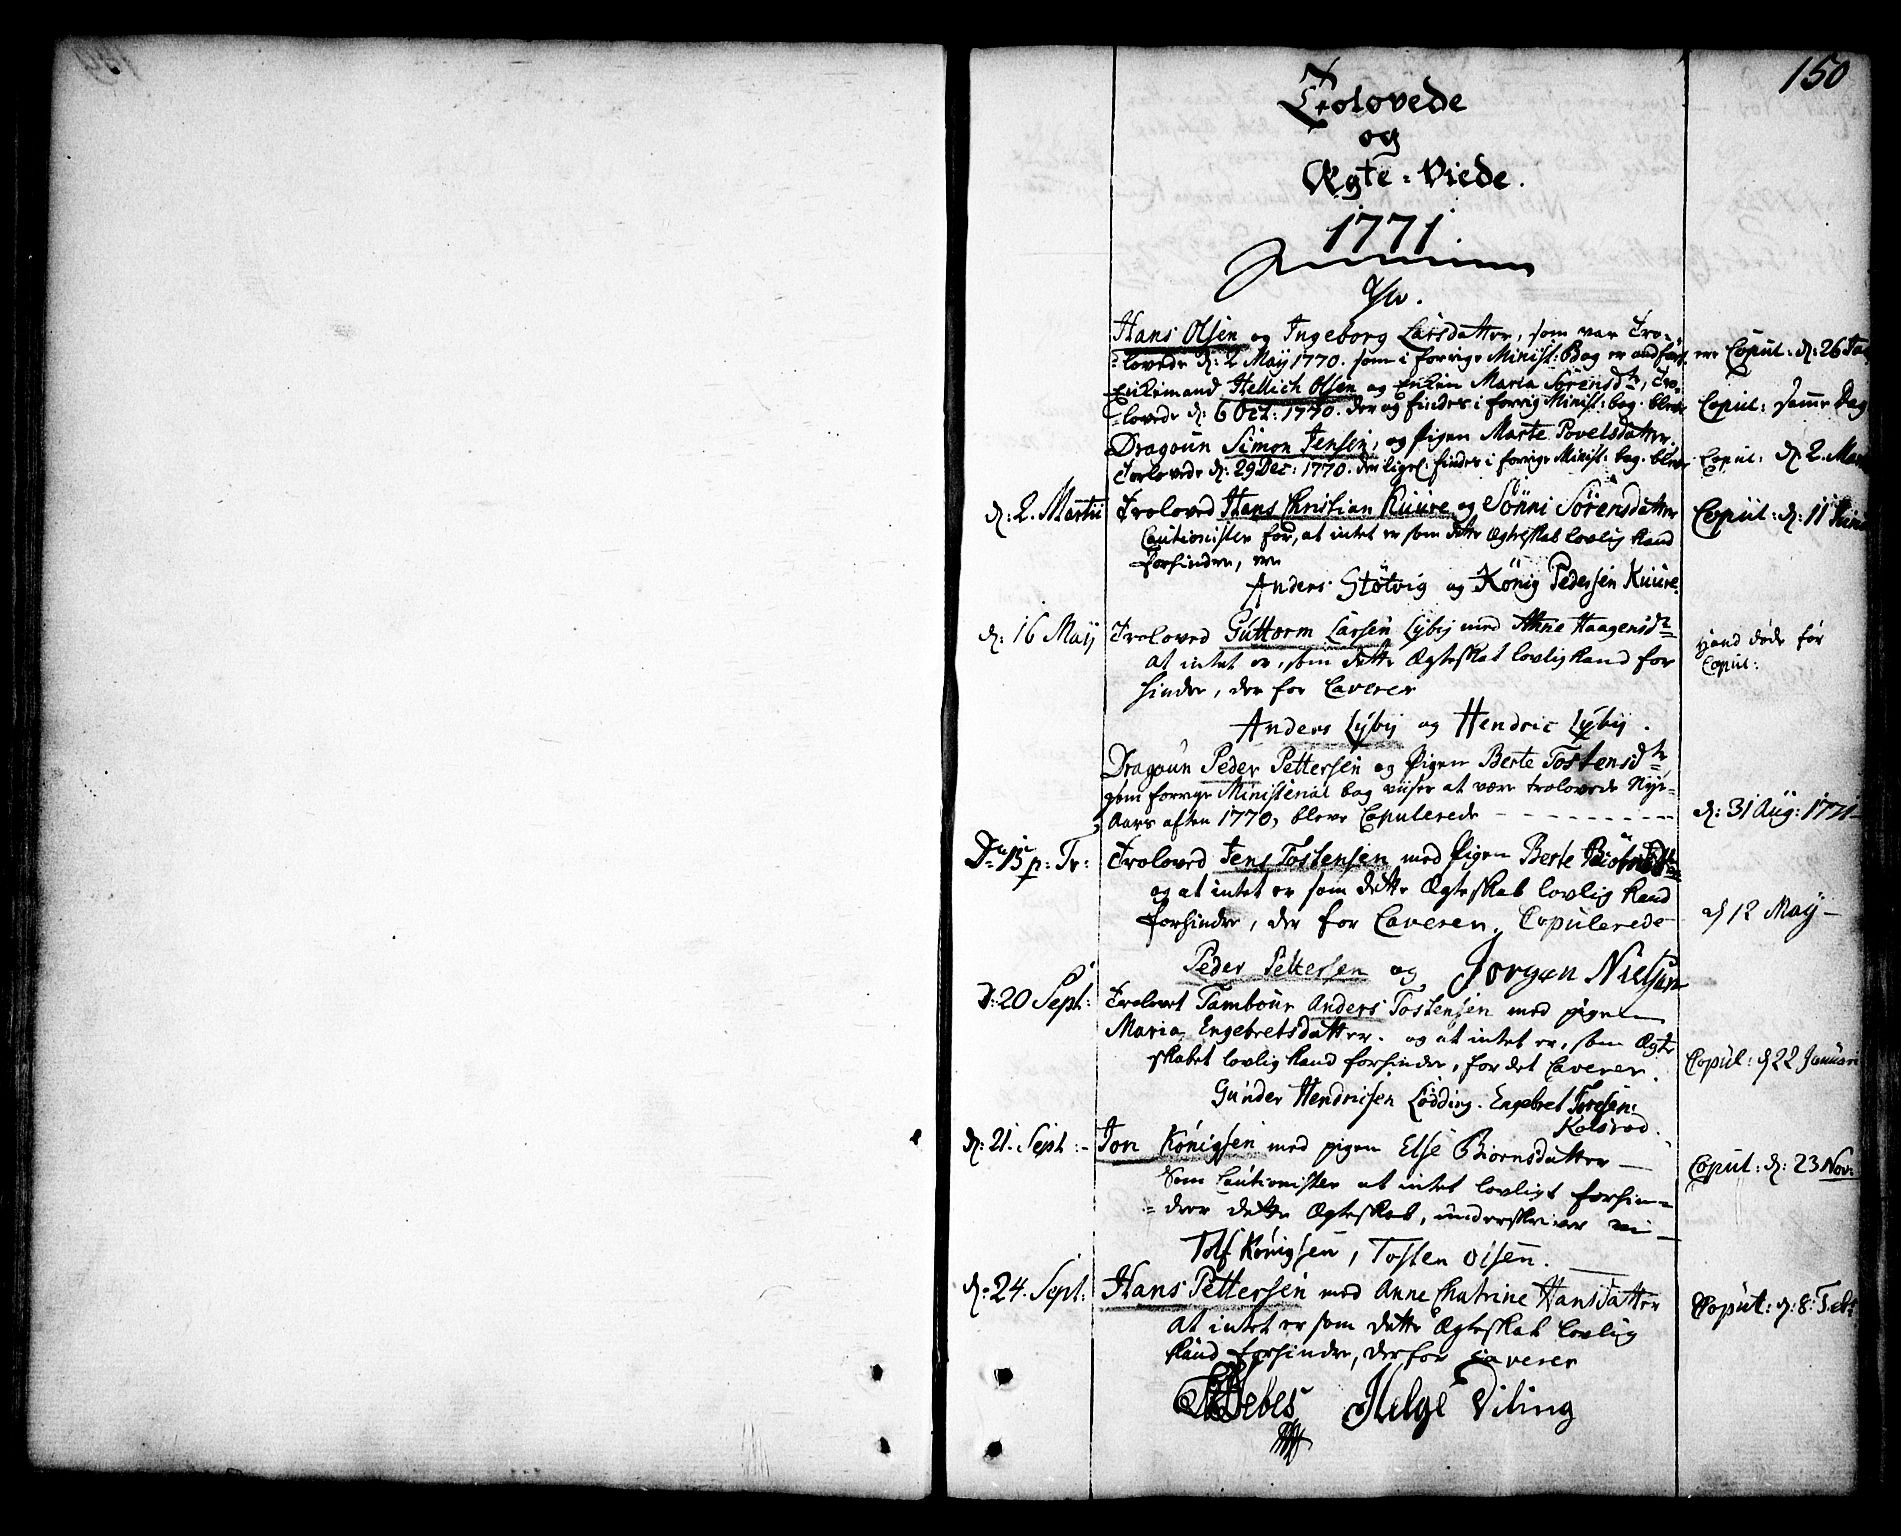 150
Trolovede
og
Ægte-Viede.
1771.
Hans Olsen og Ingeborg Larsdatter, som var Tro-
-lovede d: 2 May 1770. som i forrige Minist: Bog er anført, ere Copul: d: 26 Jan
Enkemand Hellich Olsen og Enken Maria Sørensdr, Tro-
-lovede d: 6 Oct: 1770. der og findes i forrig Minist: bog. bleve Copul: samme Dag
Dragoun Simon Jensen, og Pigen Marte Povelsdatter.
Torlovede d: 29 Dec: 1770. der ligel: findes i forrige Minist: bog. bleve Copul: d 2. Mart
d: 2. Martii Troloved Hans Christian Kuure og Sønni Sørensdatter Copul: d: 11
Cautionister for, at intet er som dette Ægteskab lovlig kand
forhindre, ere
Anders Støtvig og König Pedersen Kuure.
d: 16 Maij Troloved Guttorm Larsen Lybij med Anne Haagensdr
hand døde før
Copul:
at intet er, som dette Ægteskab lovlig kand for
hindre, der for Caverer
Anders Lybij og Hendric Lybij.
Dragoun Peder Pettersen og Pigen Berte Tostensdr,
som forrige Ministerial bog viiser at være trolovede Nyt-
Aars aften 1770, bleve Copulerede d: 31 Aug: 1771
D: 13 p: Tr: Troloved Jens Tostensen med Pigen Berte
og at intet er som dette Ægteskab lovlig kand
forhindre, der for Caveren. Copulerede d 12 Maij
Peder Pettersen og Jørgen Nielsen
D: 20 Sept: Trolovet Tambour Anders Tostensen med pigen
Maria Engebretsdatter. og at intet er, som Ægte
skabet lovlig kand forhindre, for det Caverer. Copul: d 22 Januari
Gunder Hendricsen Lødding. Engebret Toresen
Kolsrod.
d: 21. Sept:- Jon Königsen med pigen Else Biørnsdatter Copul: d: 23 Nov:
Som Cautionister at intet lovligt forhin-
-drer dette Ægteskab, underskriver vi
Tolf Königsen, Tosten Olsen.
d: 24. Sept: Hans Pettersen med Anne Chatrine Hansdatter Copul: d: 8: Febr
At intet er som dette Ægteskab lovlig
kand forhindre, derfor caverer
Debes Helge Viling